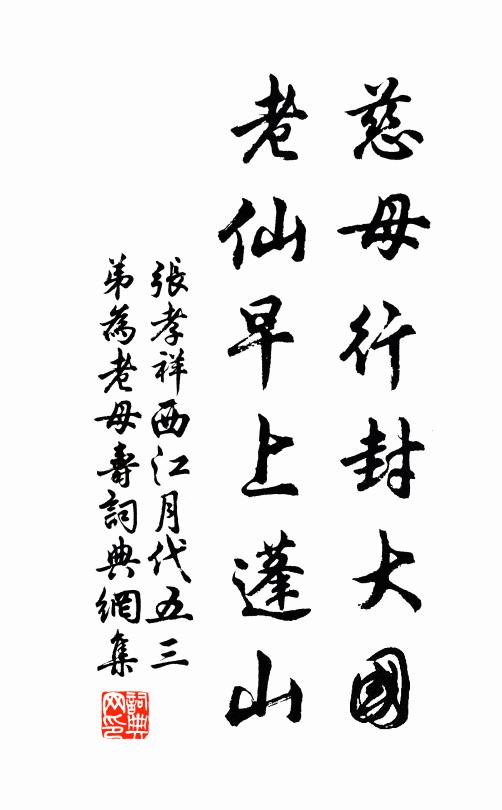 慈母行封大國
老仙早上蓬山
張孝祥西江月代五三
弟為老母壽詞典網集
詞典网印